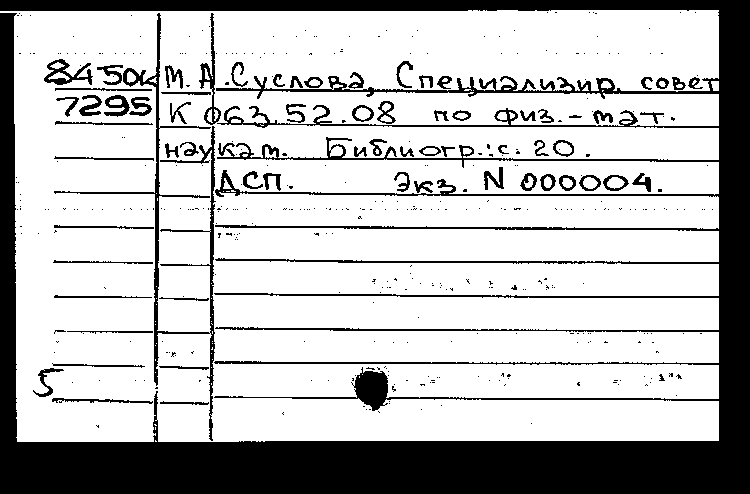 84-50к М. А. Суслова, Специализир. совет
7295 К 063.52.08 по физ.-мат.
наукам. Библиогр.: с. 20.
ДСП. Экз. N 000004.
5